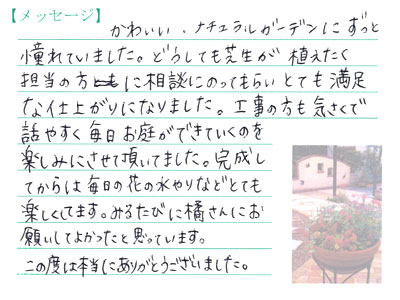 【メッセージ】
かわいい・ナチュラルガーデンにずっと
憧れていました。どうしても芝生が植えたく
担当の方に相談にのってもらいとても満足
な仕上がりになりました。工事の方も気さくで
話やすく毎日お庭ができていくのを
楽しみにさせて頂いてました。完成し
てからは毎日の花の水やりなどとても
楽しくしてます。みるたびに橘さんにお
願いしてよかったと思っています。
この度は本当にありがとうございました。